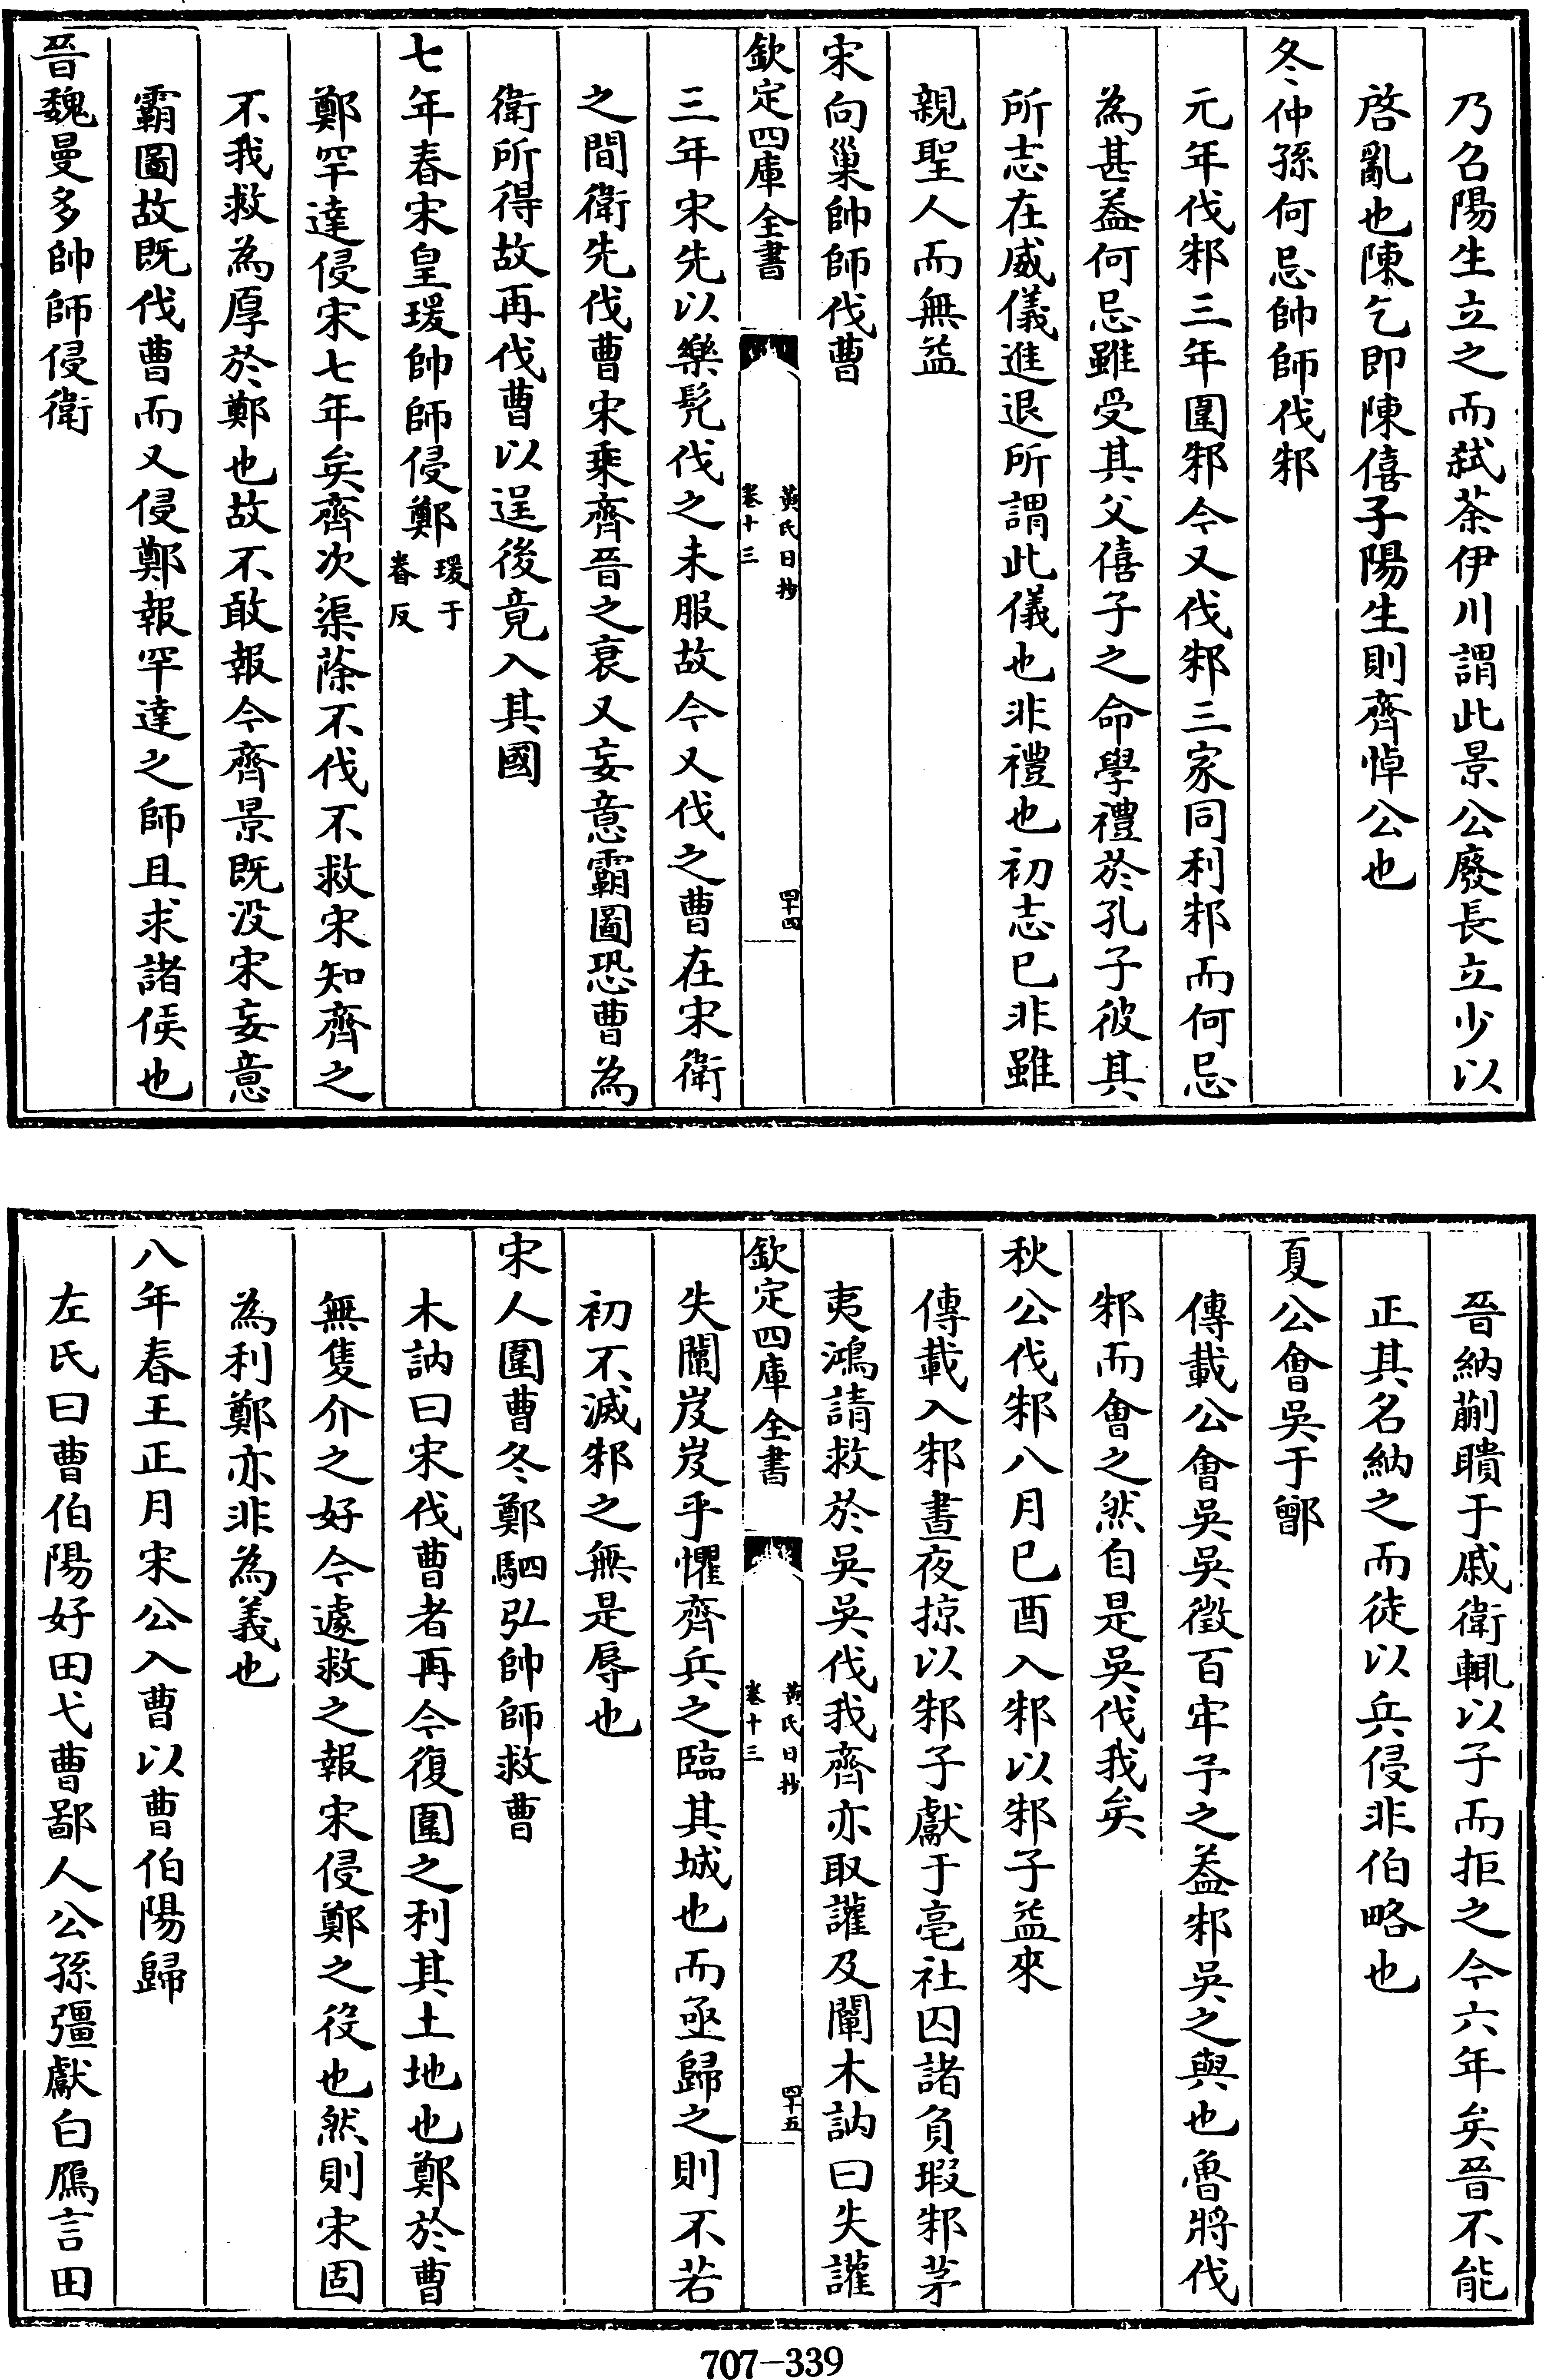 乃召陽生立之而弑荼伊川謂此景公廢長立少以
啓亂也陳乞即陳僖子陽生則齊悼公也
冬仲孫何忌帥師伐邾
元年伐邾三年圍邾今又伐邾三家同利邾而何忌
為甚葢何忌雖受其父僖子之命學禮於孔子彼其
所志在威儀進退所謂此儀也非禮也初志已非雖
親聖人而無益
宋向巢帥師伐曹
欽定四庫全書
黃氏日抄
卷十三
四十四
三年宋先以樂髠伐之未服故今又伐之曹在宋衛
之間衛先伐曹宋乗齊晉之衰又妄意霸圖恐曹為
衛所得故再伐曹以逞後竟入其國
七年春宋皇瑗帥師侵鄭瑗于眷反
鄭罕達侵宋七年矣齊次渠蒢不伐不救宋知齊之
不我救為厚於鄭也故不敢報今齊景既没宋妄意
霸圖故既伐曹而又侵鄭報罕達之師且求諸侯也
晉魏曼多帥師侵衛
晉納蒯聵于戚衛輒以子而拒之今六年矣晉不能
正其名納之而徒以兵侵非伯略也
夏公會吳于鄫
傳載公會吳吳徵百牢予之葢邾吳之與也魯將伐
邾而會之然自是吳伐我矣
秋公伐邾八月已酉入邾以邾子益來
傳載入邾晝夜掠以邾子獻于亳社囚諸負瑕邾茅
夷鴻請救於吳吳伐我齊亦取讙及闡木訥曰失讙
欽定四庫全書
黃氏日抄
卷十三
四十五
失闡岌岌乎懼齊兵之臨其城也而亟歸之則不若
初不滅邾之無是辱也
宋人圍曹冬鄭駟弘帥師救曹
木訥曰宋伐曹者再今復圍之利其土地也鄭於曹
無隻介之好今遽救之報宋侵鄭之役也然則宋固
為利鄭亦非為義也
八年春王正月宋公入曹以曹伯陽歸
左氏曰曹伯陽好田弋曹鄙人公孫彊獻白鴈言田
707-339